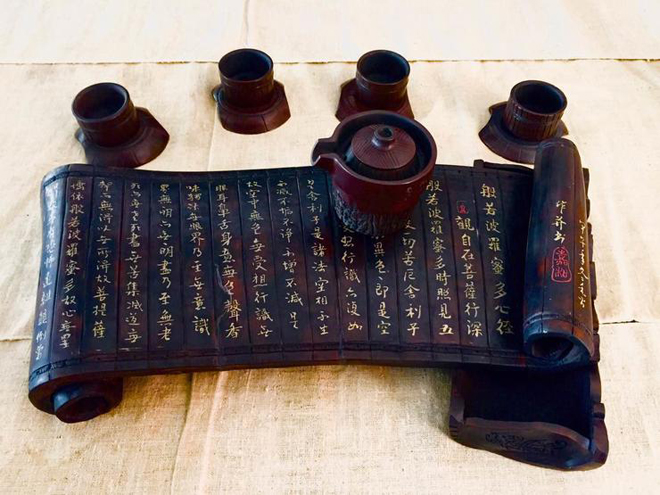 般若波羅蜜多心經
觀自在菩薩行深
般若波羅蜜多時照見五
切苦厄舍利子
異色即是空
行識亦復如
舍利子是諸法空相不生
不滅不垢不淨不增不減是
故空中無色無受想行識無
眼耳鼻舌身意無色聲香
味觸法無眼界乃至無意識
界無明亦無明盡乃至無老
死盡無苦集滅道無
智無得以無所得故菩提薩
埵依般若波羅蜜多故心無罣
有恐怖遠離顛倒夢